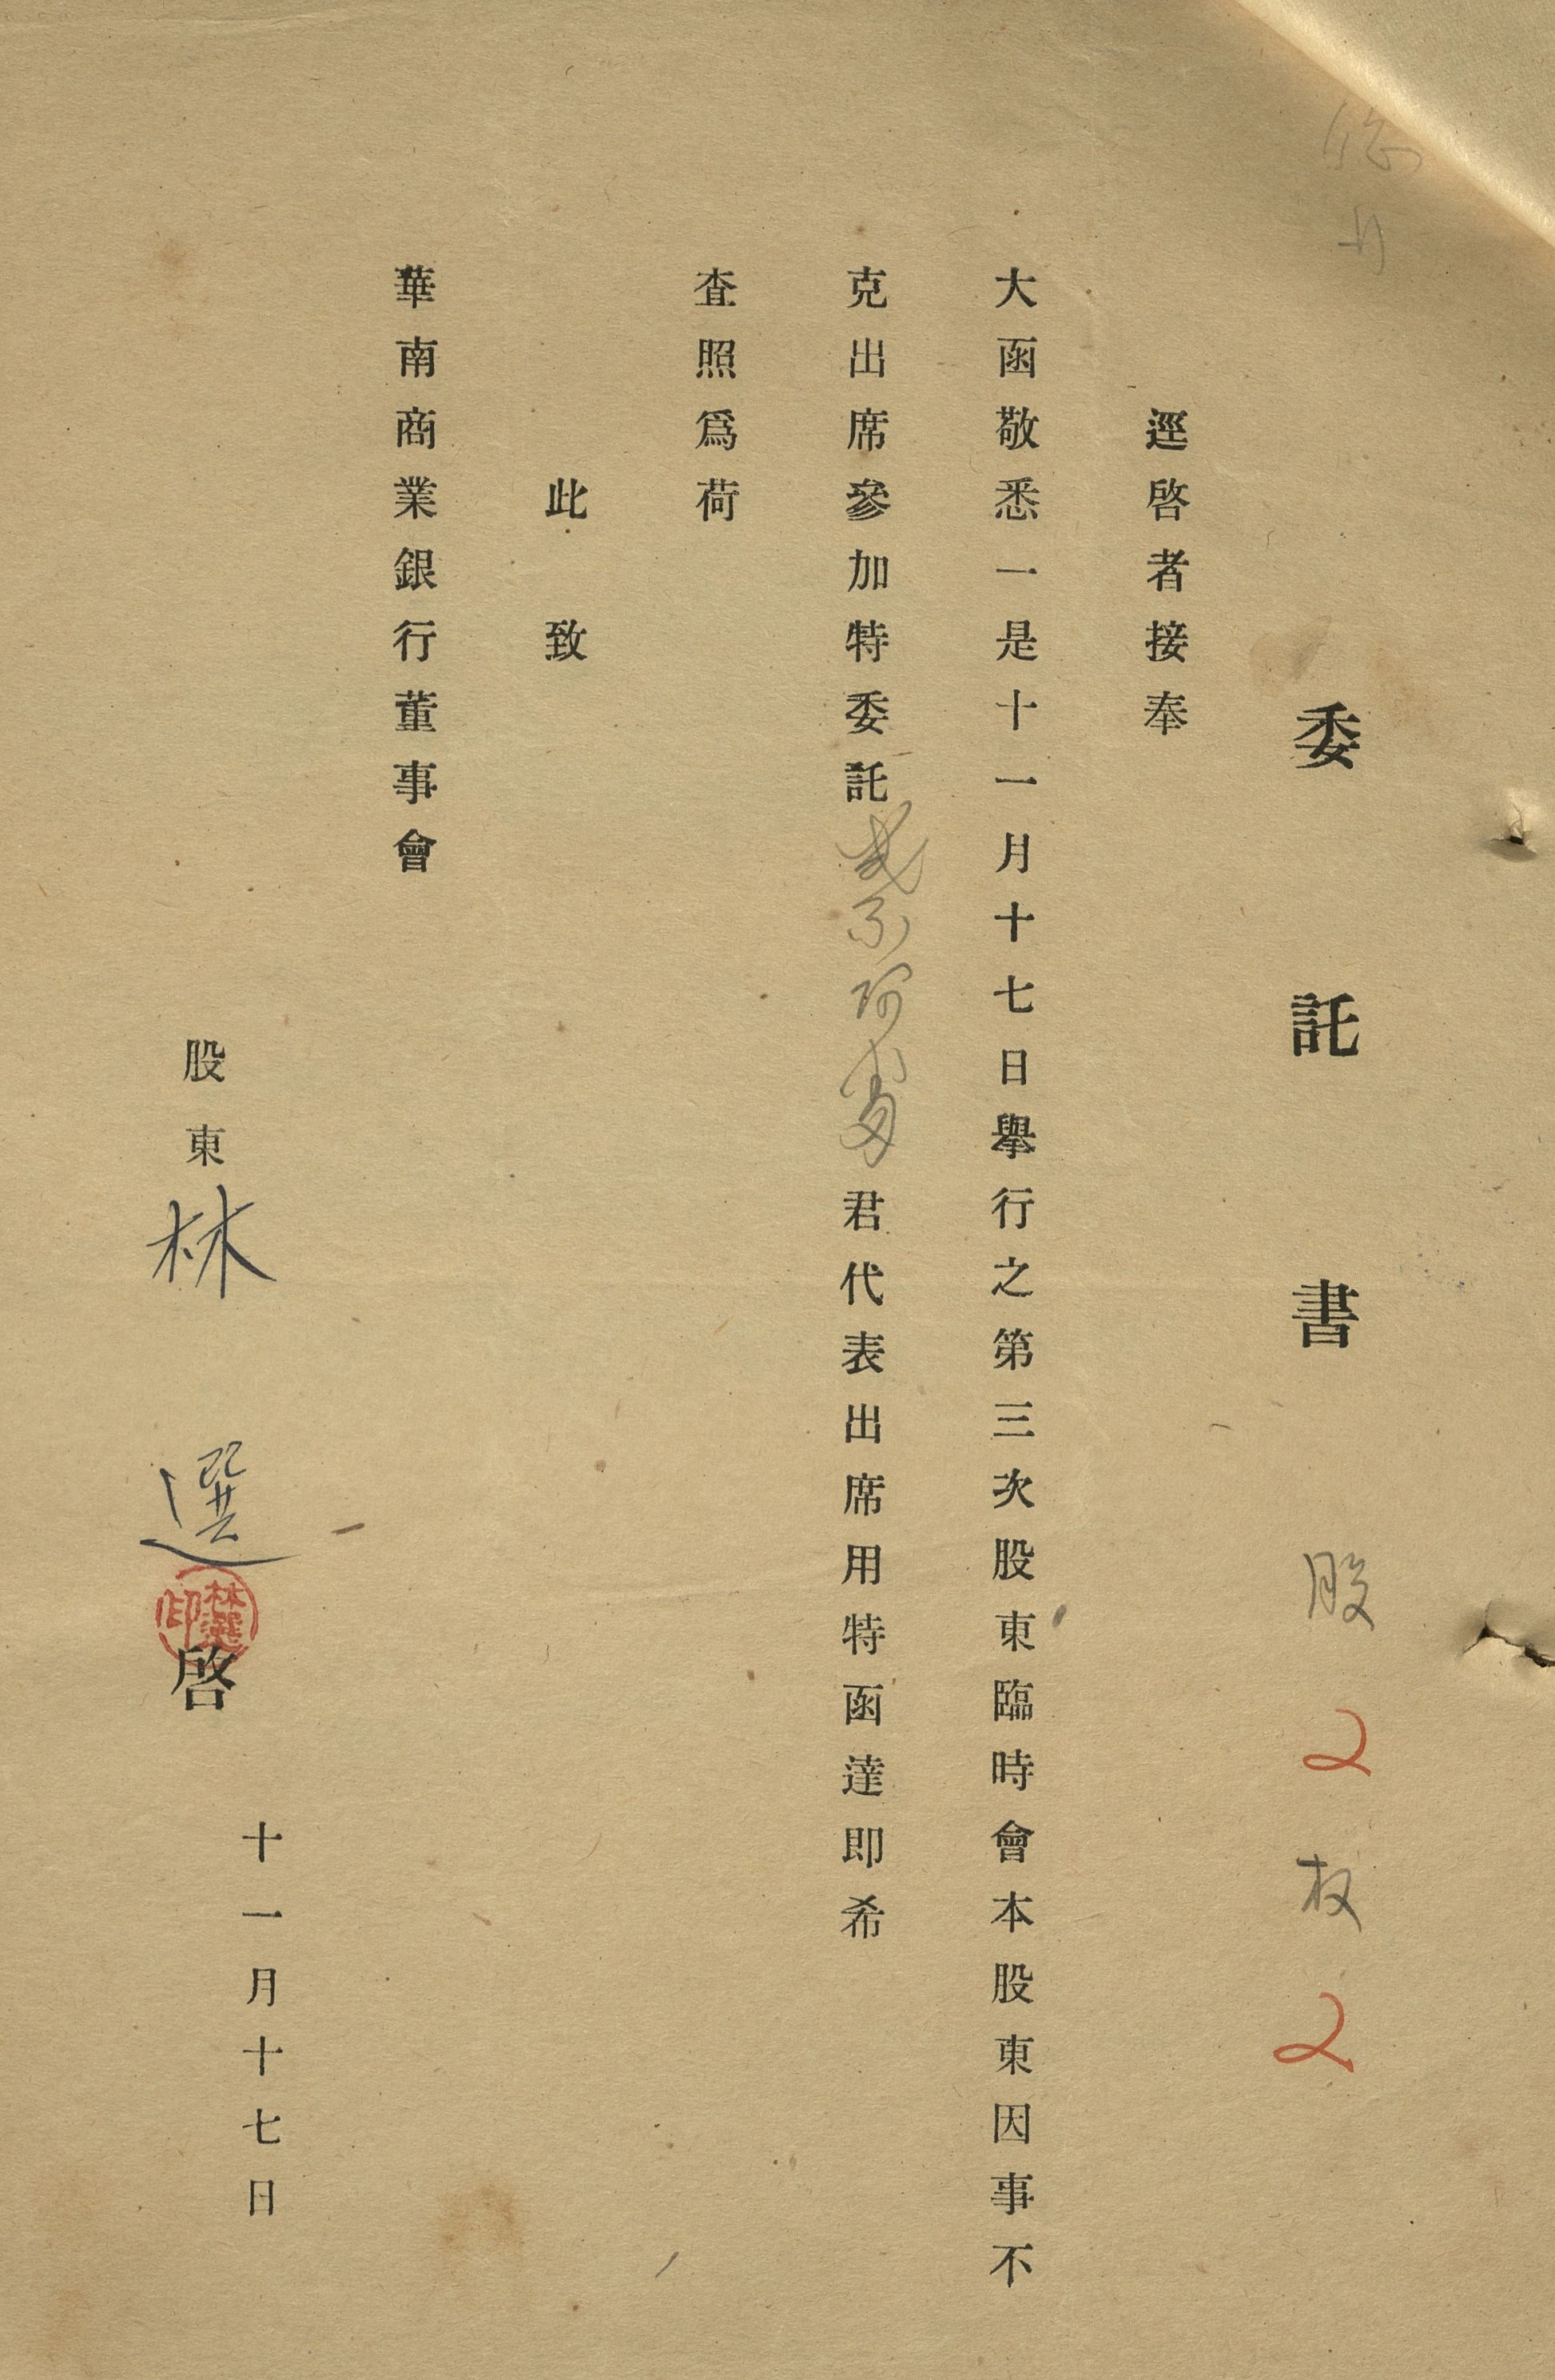 委託書 股 2 权 2
逕啓者接奉
大函敬悉一是十一月十七日舉行之第三次股東臨時會本股東因事不
克出席參加特委託 君代表出席用特函達即希
査照爲荷
此致
華南商業銀行董事會
十一月十七日
股東 林選 啓
林選印